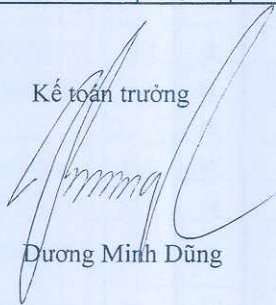 Kế toán trưởng
Dương Minh Dũng